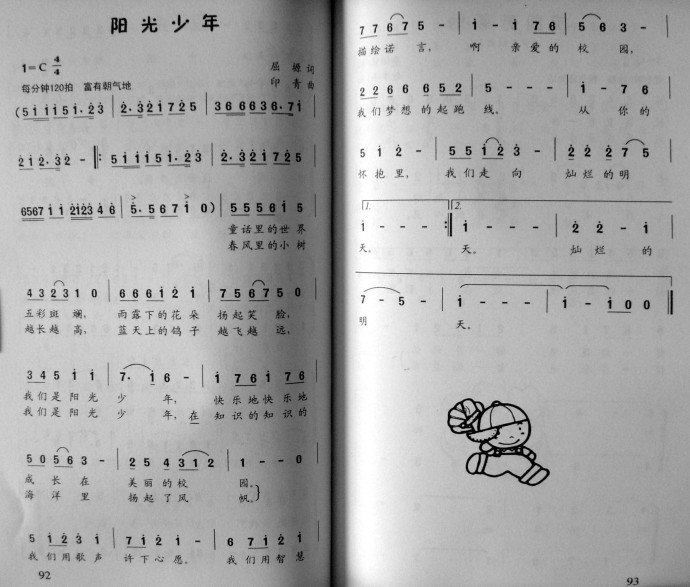 阳光少年
1=C 4/4
屈塬 词
每分钟120拍 富有朝气地
印青 曲
(5 i i i 5 i· 2 3 | 2· 3 2 i 7 2 5 | 3 6 6 6 3 6· 7 i |
2 i 2· 3 2 - ‖: 5 i i i 5 i· 2 3 | 2· 3 2 i 7 2 5 |
6567 i i 2123 4 6 | 5· 5 6 7 i 0) | 5 5 5 6 i 5 |
童话里的世界
春风里的小树
4 3 2 3 1 0 | 6 6 6 i 2 i | 7 5 6 7 5 0 |
五彩斑斓, 雨露下的花朵 扬起笑脸,
越长越高, 蓝天上的鸽子 越飞越远,
3 4 5 i i | 7· i 6 - | i 7 6 i 7 6 |
我们是阳光少年, 快乐地快乐地
我们是阳光少年,在 知识的知识的
5 0 5 6 3 - | 2 5 4 3 1 2 | 1 - - 0 |
成长在 美丽的校园。
海洋里 扬起了风帆。
5 i 2 3 i | 7 i 2 5 - | 6 7 i 2 i |
我们用歌声 许下心愿, 我们用智慧
92
7 7 6 7 5 - | i - i 7 6 | 5 - 6 - |
描绘诺言, 啊 亲爱的校园,
2 2 6 6 6 5 2 | 5 - - - | i - 7 6 |
我们梦想的起跑线。 从你的
5 i 2 - | 5 5 i 2 3 - | 2 2 2 7 5 |
怀抱里, 我们走向 灿烂的明
1. 2.
i - - - :‖ i - - - | 2 2 - i |
天。 天。 灿烂的
7 - 5 - | i - - - | i - i 0 0 ‖
明 天。
93